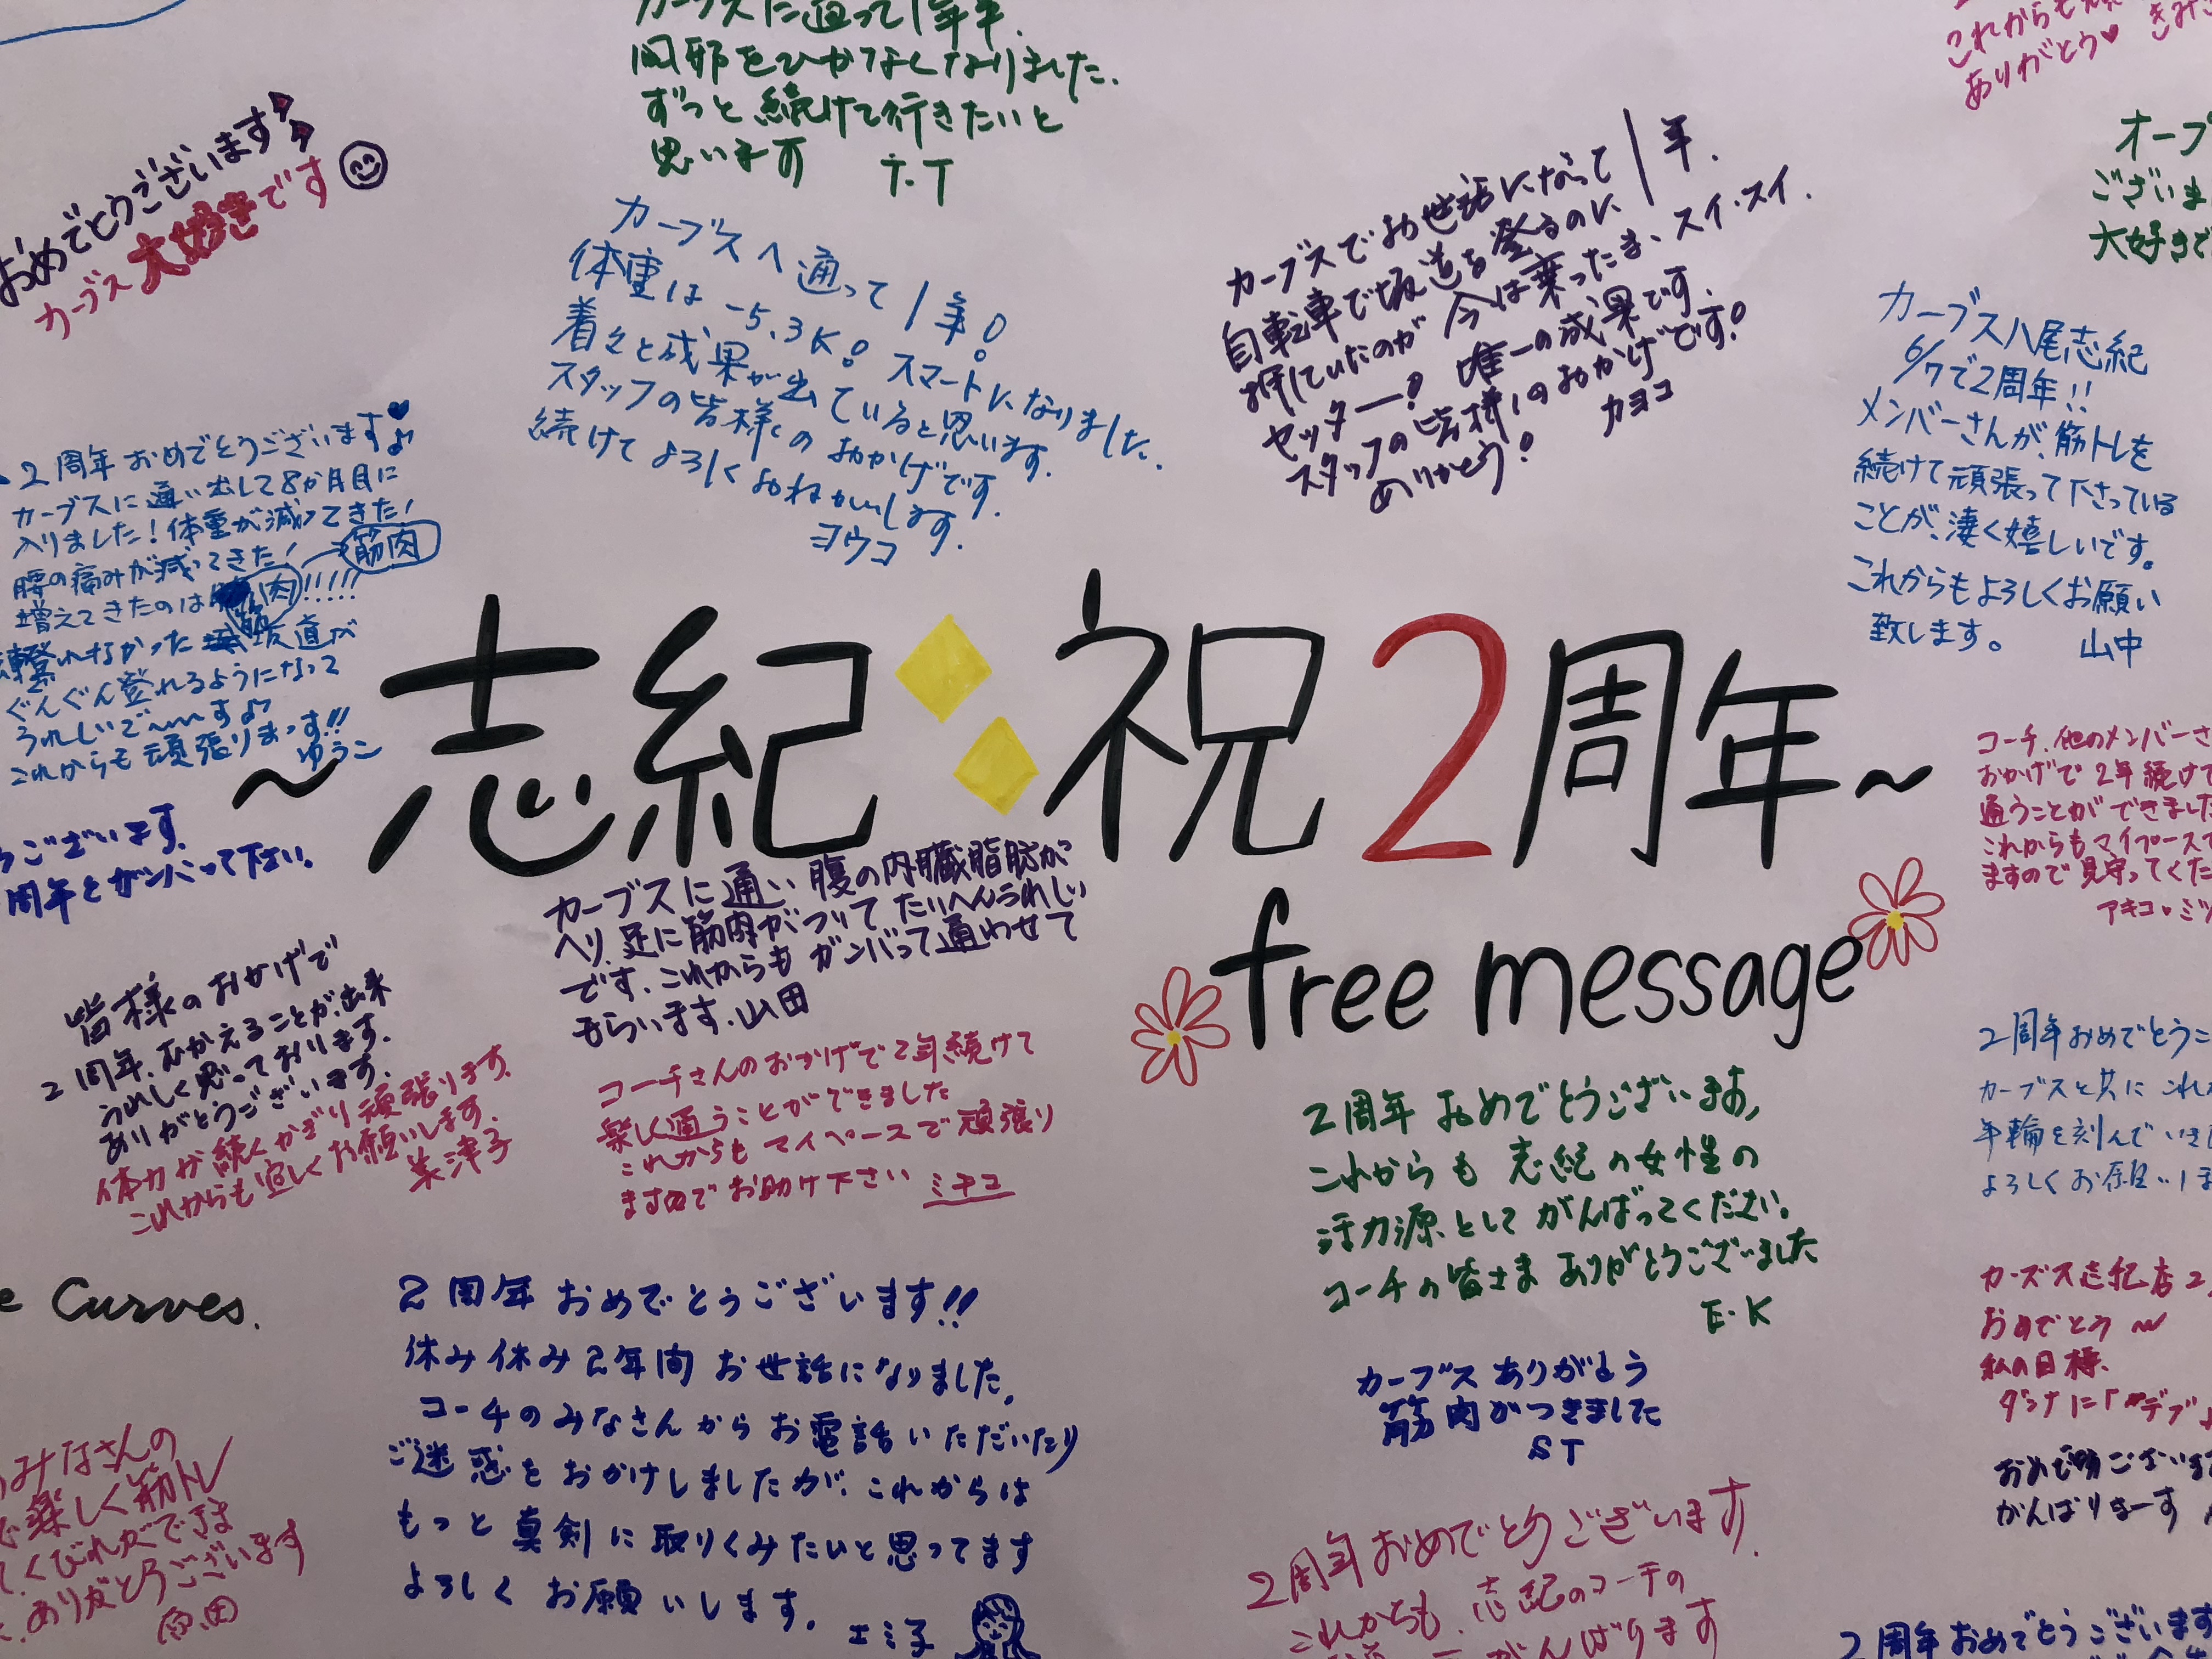 カーブスに通って1年半.
風邪をひかなくなりました.
ずっと続けて行きたいと
思います T.T
これからも
ありがとう♥
おめでとうございます
カーブス大好きです
オープ
ございま
大好きで
カーブスへ通って1年!
体重は-5.3K! スマートになりました.
着々と成果が出ていると思います.
スタッフの皆様のおかげです.
続けてよろしくおねがいします.
ヨウコ
カーブスでお世話になって1年.
自転車で坂道を登るのに
押していたのが 今は乗ったまゝスイ・スイ.
セッター! 唯一の成果です.
スタッフの皆様のおかげです!
ありがとう! カヨコ
カーブス八尾志紀
6/7で2周年!!
メンバーさんが、筋トレを
続けて頑張って下さっている
ことが、凄く嬉しいです。
これからもよろしくお願い
致します。 山中
2周年おめでとうございます♥♪
カーブスに通い出して8か月目に
入りました!体重が減ってきた!
腰の痛みが減ってきた!
増えてきたのは筋肉!!!!! 筋肉
登れなかった坂道が
ぐんぐん登れるようになって
うれしいで〜〜す♪
これからも頑張りまっす!!
ゆうこ
～志紀 祝2周年～
free message
うございます.
周年とガンバって下さい.
カーブスに通い腹の内臓脂肪が
ヘリ、足に筋肉がついてたいへんうれしい
です.これからもガンバって通わせて
もらいます.山田
コーチ、他のメンバーさ
おかげで2年続けて
通うことができました
これからもマイペースで
ますので見守ってくだ
アキコ・ミツ
皆様のおかげで
2周年、むかえることが、出来
うれしく思っております.
ありがとうございます.
体力が続くかぎり頑張ります.
これからも宜しくお願いします.
美津子
コーチさんのおかげで2年続けて
楽しく通うことができました
これからもマイペースで頑張り
ますのでお助け下さい ミチコ
2周年おめでとうございます,
これからも志紀の女性の
活力源としてがんばってください。
コーチの皆さまありがとうございました
E・K
2周年おめでとうご
カーブスと共にこれ
年輪を刻んでいき
よろしくお願いしま
e Curves.
2周年おめでとうございます!!
休み休み2年間お世話になりました,
コーチのみなさんからお電話いただいたり
ご迷惑をおかけしましたが、これからは
もっと真剣に取りくみたいと思ってます
よろしくお願いします. エミ子
カーブスありがとう
筋肉がつきました
ST
カーブス志紀店2
おめでとう〜
私の目標.
ダンナに「デブ」
がんばりまーす
みなさんの
で楽しく筋トレ
くびれができま
ありがとうございます
2周年おめでとうございます.
これからも、志紀のコーチの
がんばります
2周年おめでとうございます